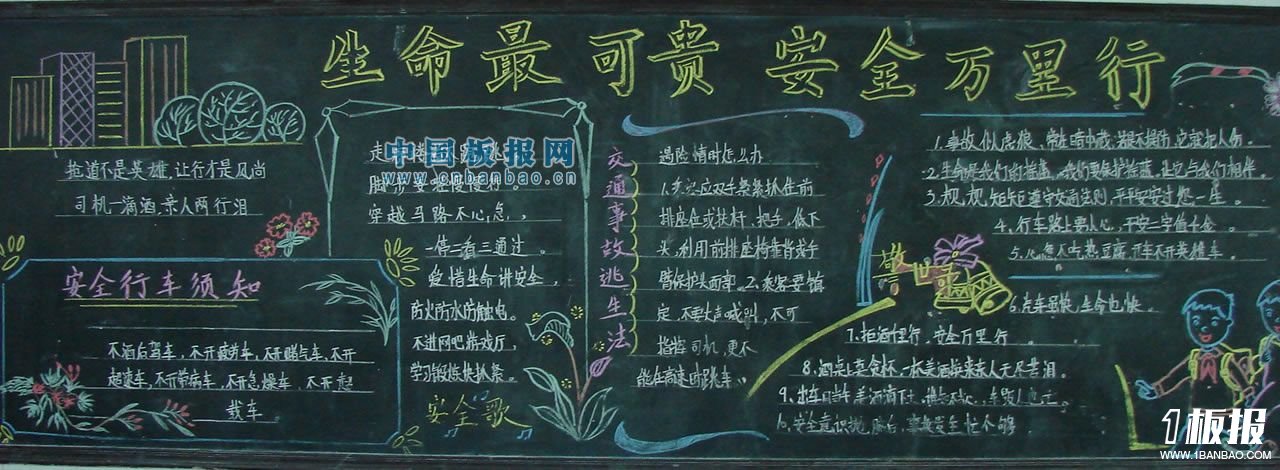 生命最可贵 安全万里行
抢道不是英雄,让行才是风尚
司机一滴酒,亲人两行泪
安全行车须知
不酒后驾车,不开疲劳车,不开赌气车,不开
超速车,不开带病车,不开急燥车,不开超
载车
中国板报网
www.cnbanbao.cn
穿越马路不心急,
一停二看三通过。
爱惜生命讲安全,
防火防水防触电。
不进网吧游戏厅,
学习锻炼快抓紧。
安全歌
交通事故逃生法
遇险情时怎么办
1.乘客应双手紧紧抓住前
排座位或扶杆、把手,低下
头,利用前排座椅靠背或手
臂保护头面部。2.乘客要镇
定,不要大声喊叫,不可
指挥司机,更不
能在高速时跳车。
警世
1.事故似虎狼,常在暗中藏,若是不提防,它就把人伤。
2.生命是我们的摇篮,我们要保护摇篮,让它与我们相伴。
3.规规矩矩遵守交通法则,平平安安过您一生。
4.行车路上要小心,平安二字值千金。
5.心急不吃热豆腐,开车不开英雄车。
6.汽车虽快,生命也快。
7.拒酒千里行,安全万里行。
8.酒桌上莫贪杯,一杯美酒换来亲人无尽苦泪。
9.出车当午,美酒滴下土,
10.安全意识
1板报
WWW.1BANBAO.COM